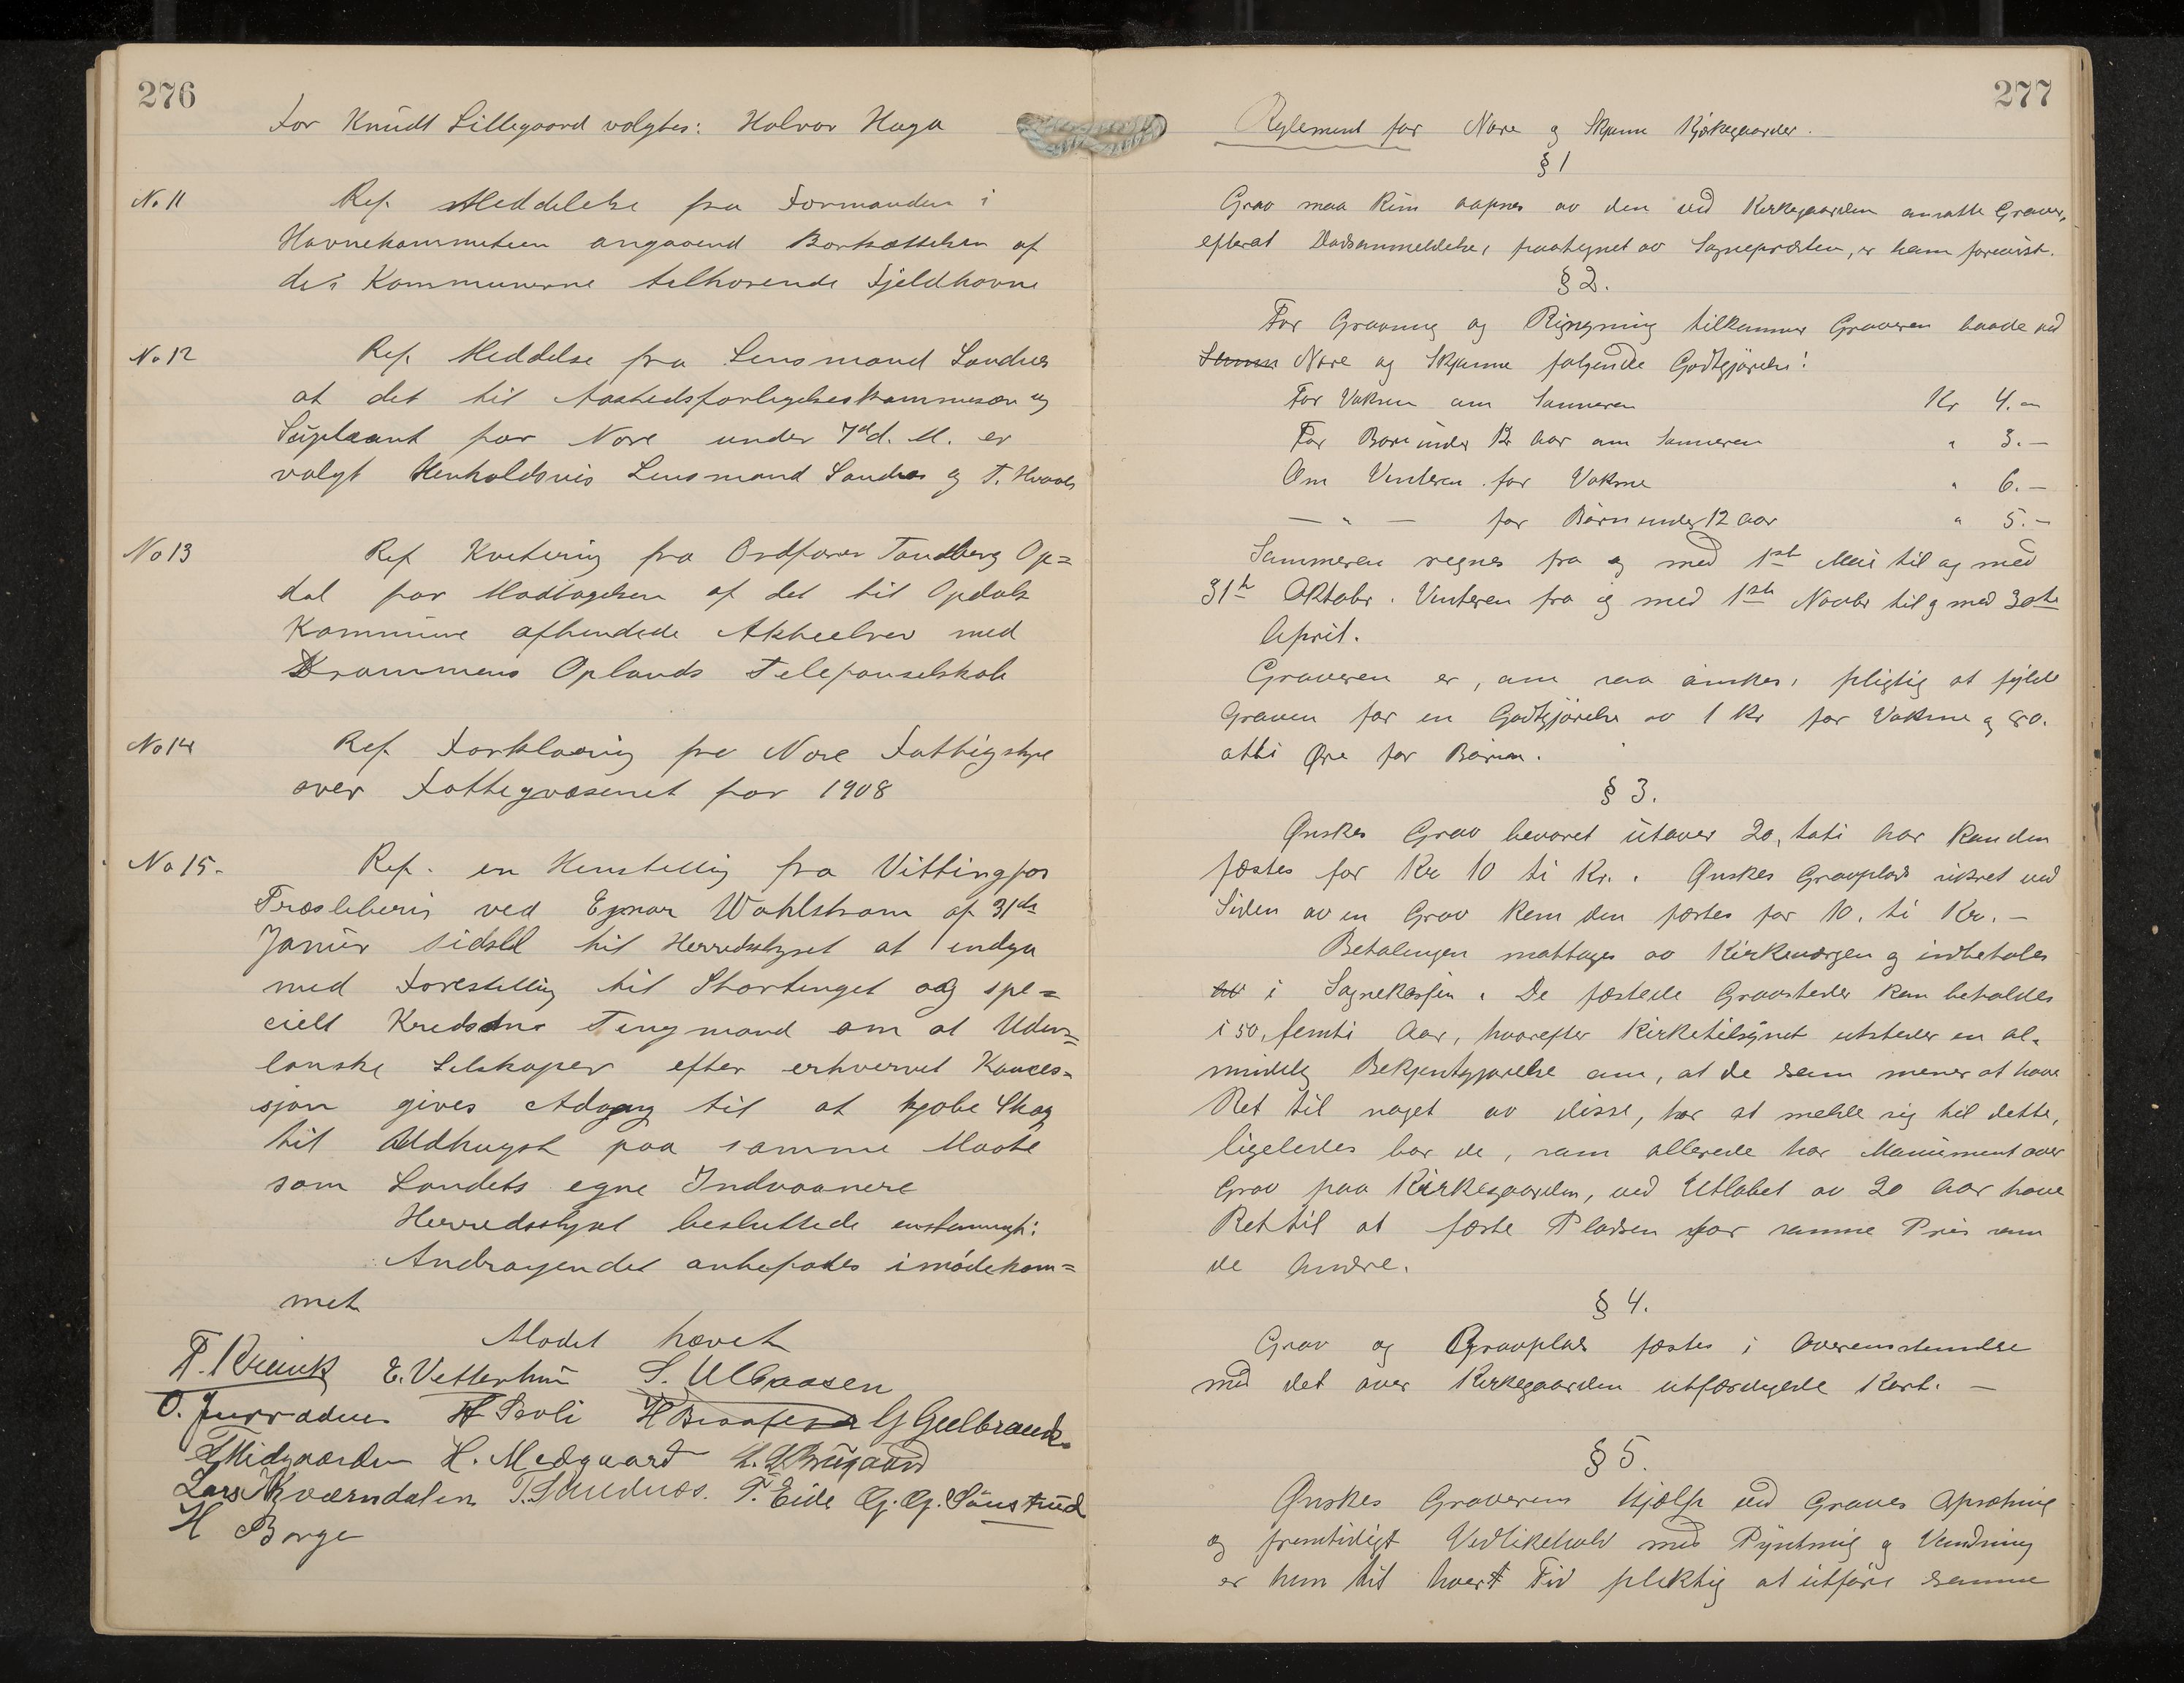 276
For Knudt Lillegaard valgtes: Halvor Haga
No 11 Ref. Meddelelse fra Formanden i
Havnekommiteen angaaend Bortsættelsen af
de i Kommunerne tilhørende Fjeldhavne
No 12 Ref. Meddelse fra Lensmand Sandnes
at det til Aastedsforligelseskommissær og
Suplaant for Nore under 7d d. M. er
valgt Henholdsvis Lensmand Sandnes og T. Hvaale
No 13 Ref Kvitering fra Ordfører Tandberg Op=
dal for Modtagelsen af det til Opdals
Kommune afhendede Aktiebrev med
Drammens Oplands Telefonselskab
No 14 Ref. Forklaring fra Nore Fattigstyre
over Fattigvæsenet for 1908
No 15. Ref. en Henstellig fra Vittingfos
Træsliberi ved Egnar Wahlstrøm af 31te
Januar sidstl til Herredsstyret at indgaa
med Forestillig til Stortinget og spe=
cielt Kredsens Tingmand om at Uden=
lanske Selskaper efter erhvervet Konces=
sjon gives Adgang til at kjøbe Skog
til Uddhugst paa samme Maate
som Landets egne Indvaanere
Herredsstyret besluttede enstemmigt:
Andragendet anbefales imødekom=
met
Mødet hævet
T. Kravik E. Vetterhus S. Ulbaasen
O. Juvraden A Skoli H Braaten G Gulbrands
Midgaarden H. Medgaard
Lars Kværndalen T. Sandnes. T. Eide G. G. Sønstrud
H Borge
277
Reglement for Nore og Skjønne Kirkegaarder.
§ 1
Grav maa kun aapnes av den ved Kirkegaarden ansatte Graver,
efterat Dødsanmeldelse, paategnet av Sognepræsten, er ham forevist.
§ 2.
For Gravning og Ringning tilkommer Graveren baade ved
Nore og Skjønne følgende Godtgjørelse:
For Voksne om Sommeren Kr 4.-
For Barn under 12 Aar om Sommeren " 3.-
Om Vinteren for Voksne " 6.-
- " - for Børn under 12 Aar " 5.-
Sommeren regnes fra og med 1ste Mai til og med
31te Oktobr. Vinteren fra og med 1ste Novbr til og med 30te
April.
Graveren er, om saa ønskes, pligtig at fylde
Graven for en Godtgjørelse av 1 Kr for Voksne og 80.
otti Øre for Børn.
§ 3.
Ønskes Grav bevaret utover 20, toti Aar kan den
fæstes for Kr 10 ti Kr. . Ønskes Gravplads sikret ved
Siden av en Grav kan den fæstes for 10. ti Kr. -
Betalingen mottages av Kirkeværgen og indbetales
av i Sognekassen. De fæstede Gravsteder kan beholdes
i 50, femti Aar, hvorefter Kirketilsynet utsteder en al-
mindelig Bekjentgjørelse om, at de som mener at have
Ret til noget av disse, har at melde sig til dette,
ligeledes bør de, som allerede har Monument over
Grav paa Kirkegaarden, ved Utløbet av 20 Aar have
Ret til at fæste Pladsen for samme Pris som
de Andre.
§ 4.
Grav og Gravplads fæstes i Overensstemmelse
med det over Kirkegaarden utfærdigede Kart. -
§ 5.
Ønskes Graverens Hjælp ved Graves Opsætning
og fremtidigt Vedlikehold med Pyntning og Vandning
er han til hvert Tid pliktig at utføre samme